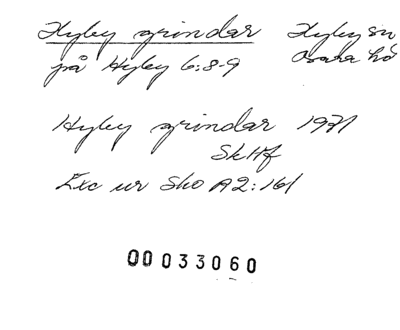 Hyby grindar Hyby sn
på Hyby 6:8-9 Bara hd
Hyby grindar 1971
SkHf
Exc ur Sho A2:161
00033060